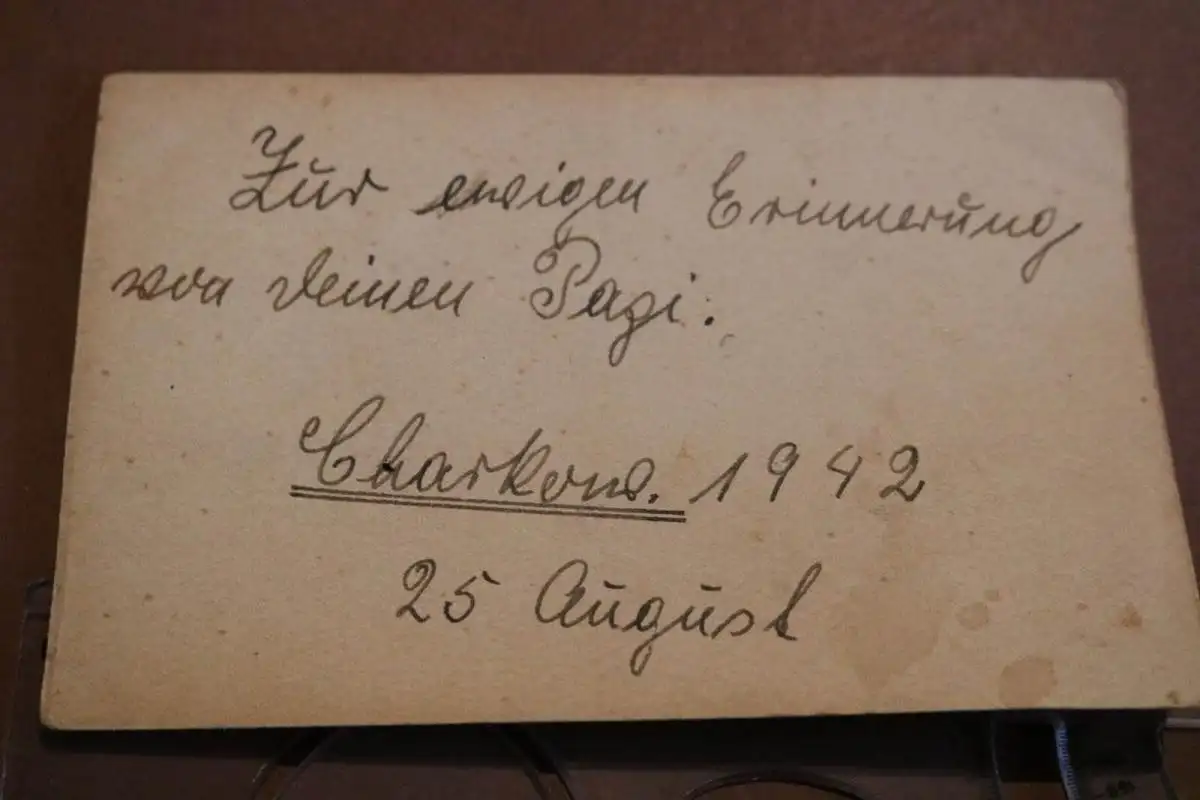 Zur ewigen Erinnerung
von deinen Papi.
Charkow. 1942
25 August